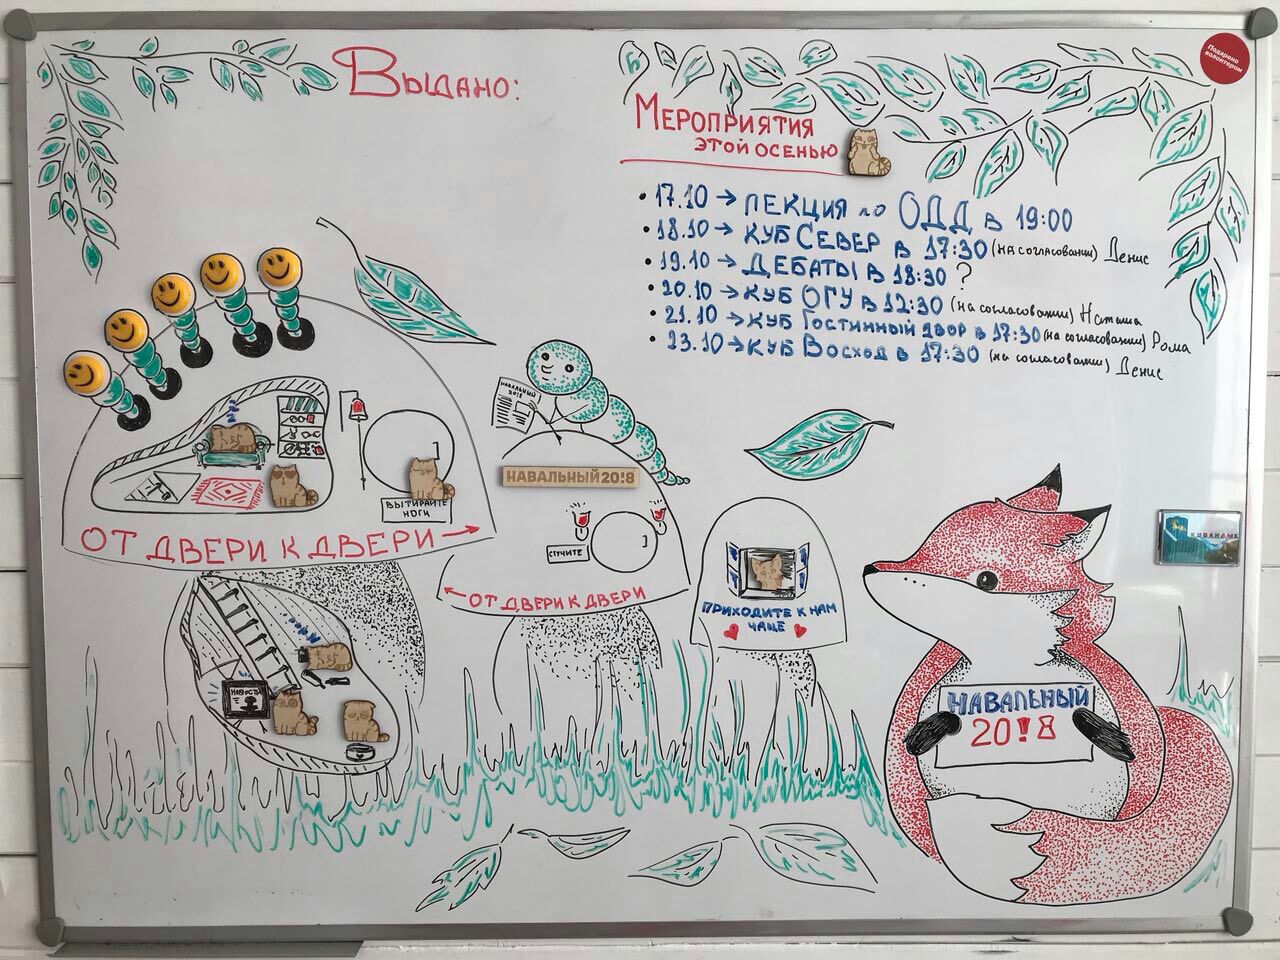 Выдано:
Подарено
волонтером
Мероприятия
этой осенью
• 17.10 → лекция по ОДД в 19:00
• 18.10 → куб Север в 17:30 (на согласовании) Денис
• 19.10 → дебаты в 18:30 ?
• 20.10 → куб ОГУ в 12:30 (на согласовании) Наташа
• 21.10 → куб Гостинный двор в 17:30 (на согласовании) Рома
• 23.10 → куб Восход в 17:30 (на согласовании) Денис
НАВАЛЬНЫЙ
2018
НАВАЛЬНЫЙ 20!8
ВЫТИРАЙТЕ
НОГИ
ОТ ДВЕРИ К ДВЕРИ →
СТУЧИТЕ
← ОТ ДВЕРИ К ДВЕРИ
ПРИХОДИТЕ К НАМ
ЧАЩЕ
НОВОСТИ
НАВАЛЬНЫЙ
20!8